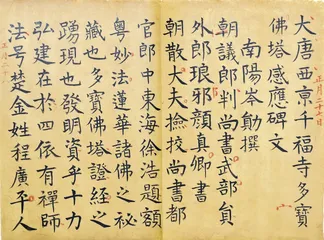 大唐西京千福寺多寶
佛塔感應碑文
南陽岑勛撰
朝議郎判尚書武部員
外郎琅邪顏真卿書
朝散大夫撿校尚書都
官郎中東海徐浩題額
粵妙法蓮華諸佛之秘
藏也多寶佛塔證經之
踴現也發明資乎十力
弘建在於四依有禪師
法号楚金姓程廣平人